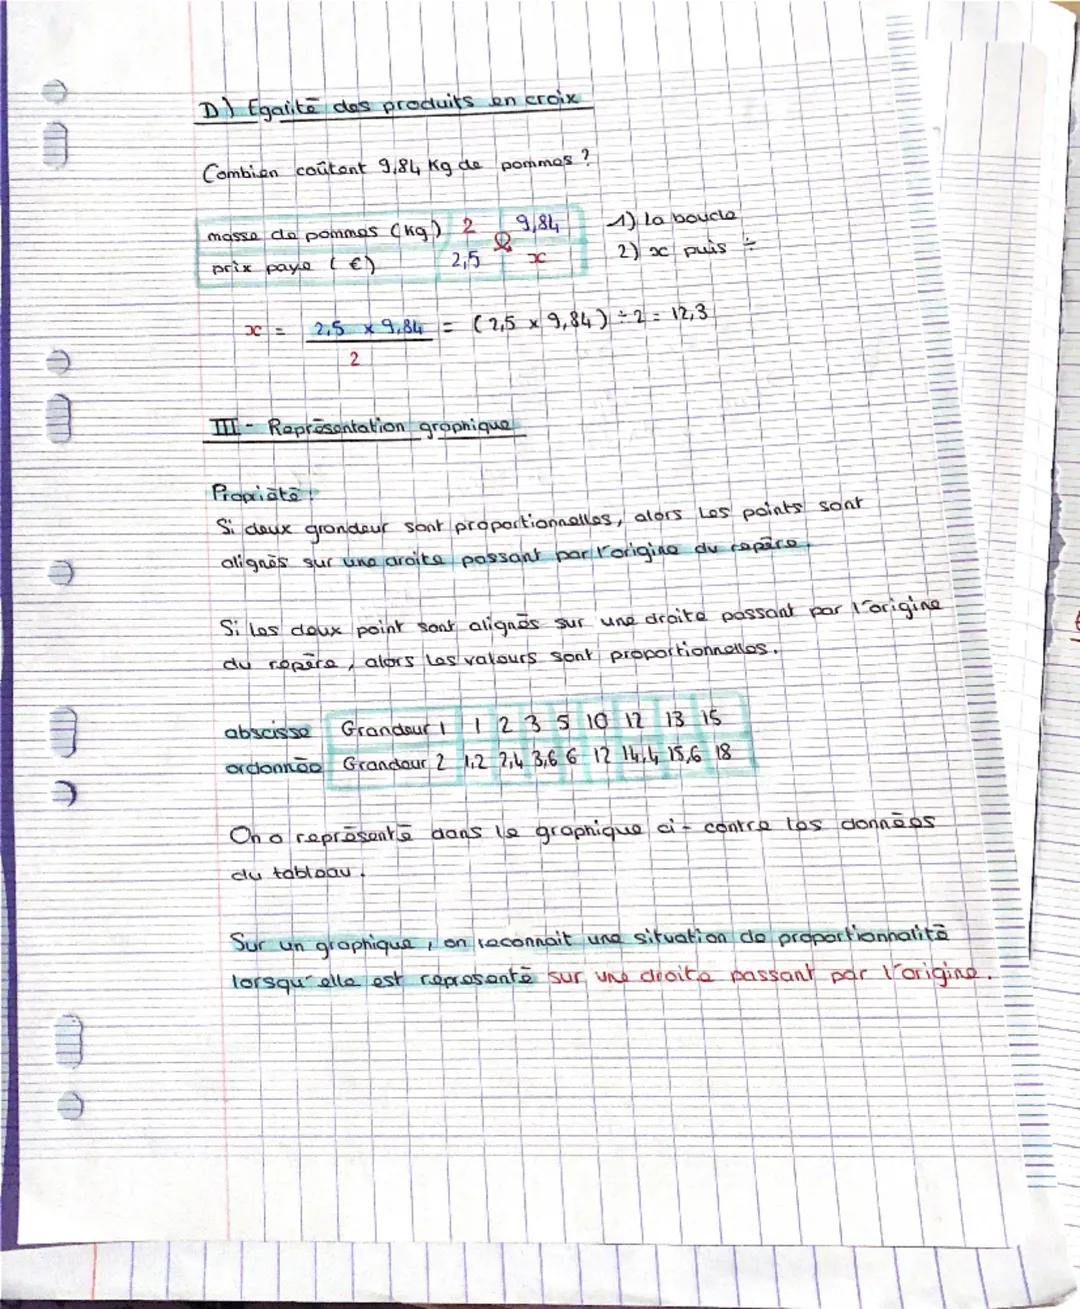 D) Égalité des produits en croix
Combien coûtent 9,84 Kg de pommes ?
masse de pommes (kg) 2 9,84
prix payé (€) 2,5 x
1) la boucle
2) x puis ÷
x = 2,5 x 9,84 / 2 = (2,5 x 9,84) ÷ 2 = 12,3
III - Représentation graphique
Propriété :
Si deux grandeur sont proportionnelles, alors les points sont
alignés sur une droite passant par l'origine du repère.
Si les deux point sont alignés sur une droite passant par l'origine
du repère, alors les valeurs sont proportionnelles.
abscisse Grandeur 1 1 2 3 5 10 12 13 15
ordonnée Grandeur 2 1,2 2,4 3,6 6 12 14,4 15,6 18
On a représenté dans le graphique ci-contre les données
du tableau.
Sur un graphique, on reconnait une situation de proportionnalité
lorsqu'elle est representé sur une droite passant par l'origine.